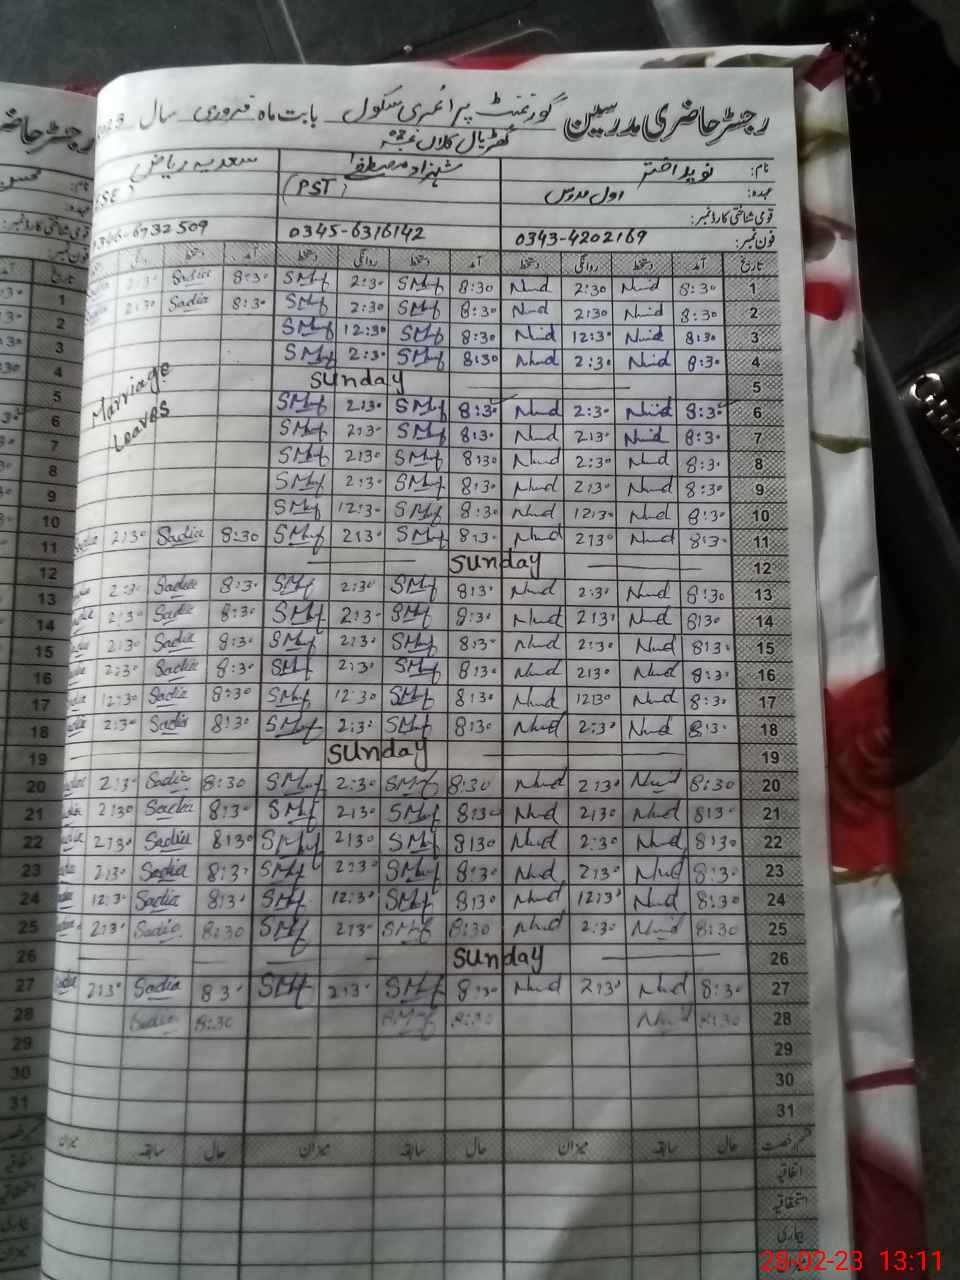 رجسٹر حاضری مدرسین گورنمنٹ پرائمری سکول بابت ماہ فروری سال 2023
گھڑیال کلاں
نام: نوید اختر شہزاد مصطفیٰ سعدیہ ریاض
عہدہ: اول مدرس (PST) ESE)
قومی شناختی کارڈ نمبر:
فون نمبر: 0343-4202169 0345-6316142 6732509
تاریخ آمد دستخط روانگی دستخط آمد دستخط روانگی دستخط آمد دستخط
1 8:30 Nvd 2:30 Nvd 8:30 SMuf 2:30 SMuf 8:30 Sadia 2:30 Sadia
2 8:30 Nvd 2:30 Nvd 8:30 SMuf 2:30 SMuf 8:30 Sadia 2:30 Sadia
3 8:30 Nvd 12:30 Nvd 8:30 SMuf 12:30 SMuf
4 8:30 Nvd 2:30 Nvd 8:30 SMuf 2:30 SMuf
5 Sunday
Marriage Leaves
6 8:30 Nvd 2:30 Nvd 8:30 SMuf 2:30 SMuf
7 8:30 Nvd 2:30 Nvd 8:30 SMuf 2:30 SMuf
8 8:30 Nvd 2:30 Nvd 8:30 SMuf 2:30 SMuf
9 8:30 Nvd 2:30 Nvd 8:30 SMuf 2:30 SMuf
10 8:30 Nvd 12:30 Nvd 8:30 SMuf 12:30 SMuf
11 8:30 Nvd 2:30 Nvd 8:30 SMuf 2:30 SMuf 8:30 Sadia 2:30 Sadia
12 Sunday
13 8:30 Nvd 2:30 Nvd 8:30 SMuf 2:30 SMuf 8:30 Sadia 2:30 Sadia
14 8:30 Nvd 2:30 Nvd 8:30 SMuf 2:30 SMuf 8:30 Sadia 2:30 Sadia
15 8:30 Nvd 2:30 Nvd 8:30 SMuf 2:30 SMuf 8:30 Sadia 2:30 Sadia
16 8:30 Nvd 2:30 Nvd 8:30 SMuf 2:30 SMuf 8:30 Sadia 2:30 Sadia
17 8:30 Nvd 12:30 Nvd 8:30 SMuf 12:30 SMuf 8:30 Sadia 12:30 Sadia
18 8:30 Nvd 2:30 Nvd 8:30 SMuf 2:30 SMuf 8:30 Sadia 2:30 Sadia
19 Sunday
20 8:30 Nvd 2:30 Nvd 8:30 SMuf 2:30 SMuf 8:30 Sadia 2:30 Sadia
21 8:30 Nvd 2:30 Nvd 8:30 SMuf 2:30 SMuf 8:30 Sadia 2:30 Sadia
22 8:30 Nvd 2:30 Nvd 8:30 SMuf 2:30 SMuf 8:30 Sadia 2:30 Sadia
23 8:30 Nvd 2:30 Nvd 8:30 SMuf 2:30 SMuf 8:30 Sadia 2:30 Sadia
24 8:30 Nvd 12:30 Nvd 8:30 SMuf 12:30 SMuf 8:30 Sadia 12:30 Sadia
25 8:30 Nvd 2:30 Nvd 8:30 SMuf 2:30 SMuf 8:30 Sadia 2:30 Sadia
26 Sunday
27 8:30 Nvd 2:30 Nvd 8:30 SMuf 2:30 SMuf 8:30 Sadia 2:30 Sadia
28 8:30 Nvd 8:30 SMuf 8:30 Sadia
29
30
31
قسم رخصت حال سابقہ میزان حال سابقہ میزان حال سابقہ میزان
اتفاقیہ
استحقاقیہ
بیماری
28-02-23 13:11